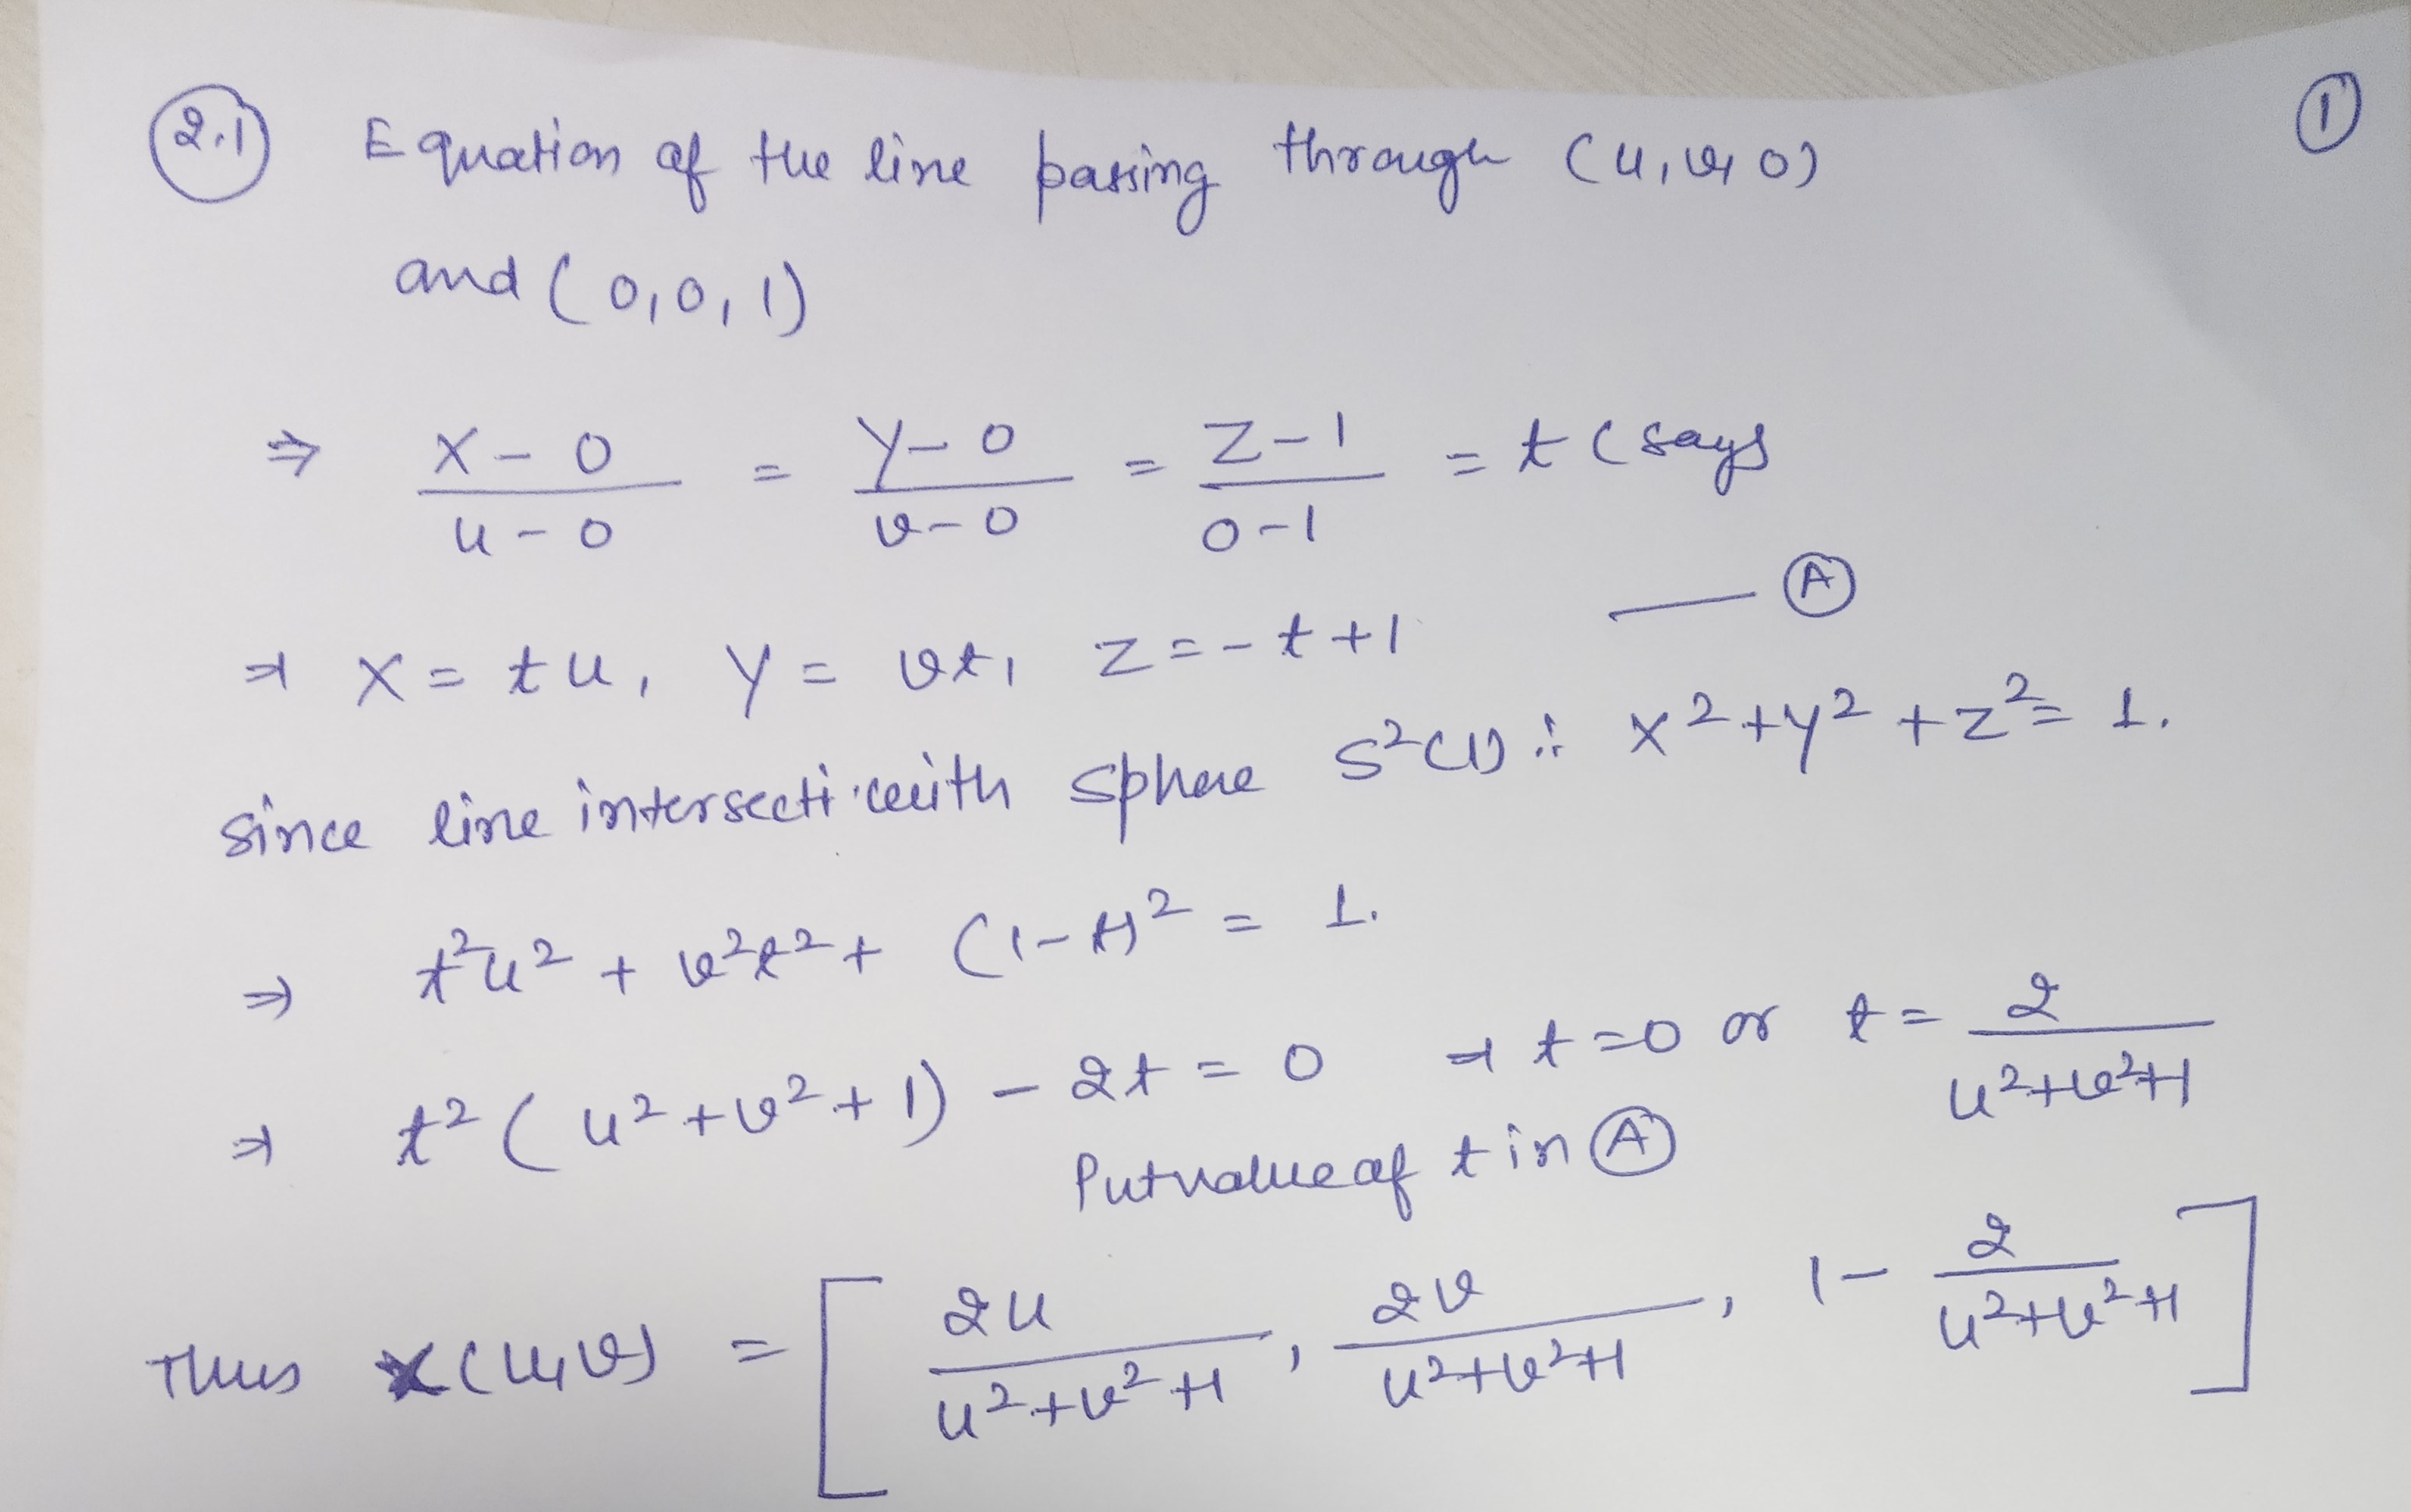 2.1 Equation of the line passing through (u, v, 0) ①
and (0, 0, 1)
⇒ X-0/u-0 = Y-0/v-0 = Z-1/0-1 = t (says
⇒ X = tu, Y = vt, Z = -t+1 — Ⓐ
since line intersecti with sphere S²(1) ∴ X²+Y²+Z² = 1.
⇒ t²u² + v²t² + (1-t)² = 1.
⇒ t²(u²+v²+1) - 2t = 0 ⇒ t=0 or t = 2/u²+v²+1
Put value of t in Ⓐ
Thus X(u,v) = [2u/u²+v²+1, 2v/u²+v²+1, 1 - 2/u²+v²+1]